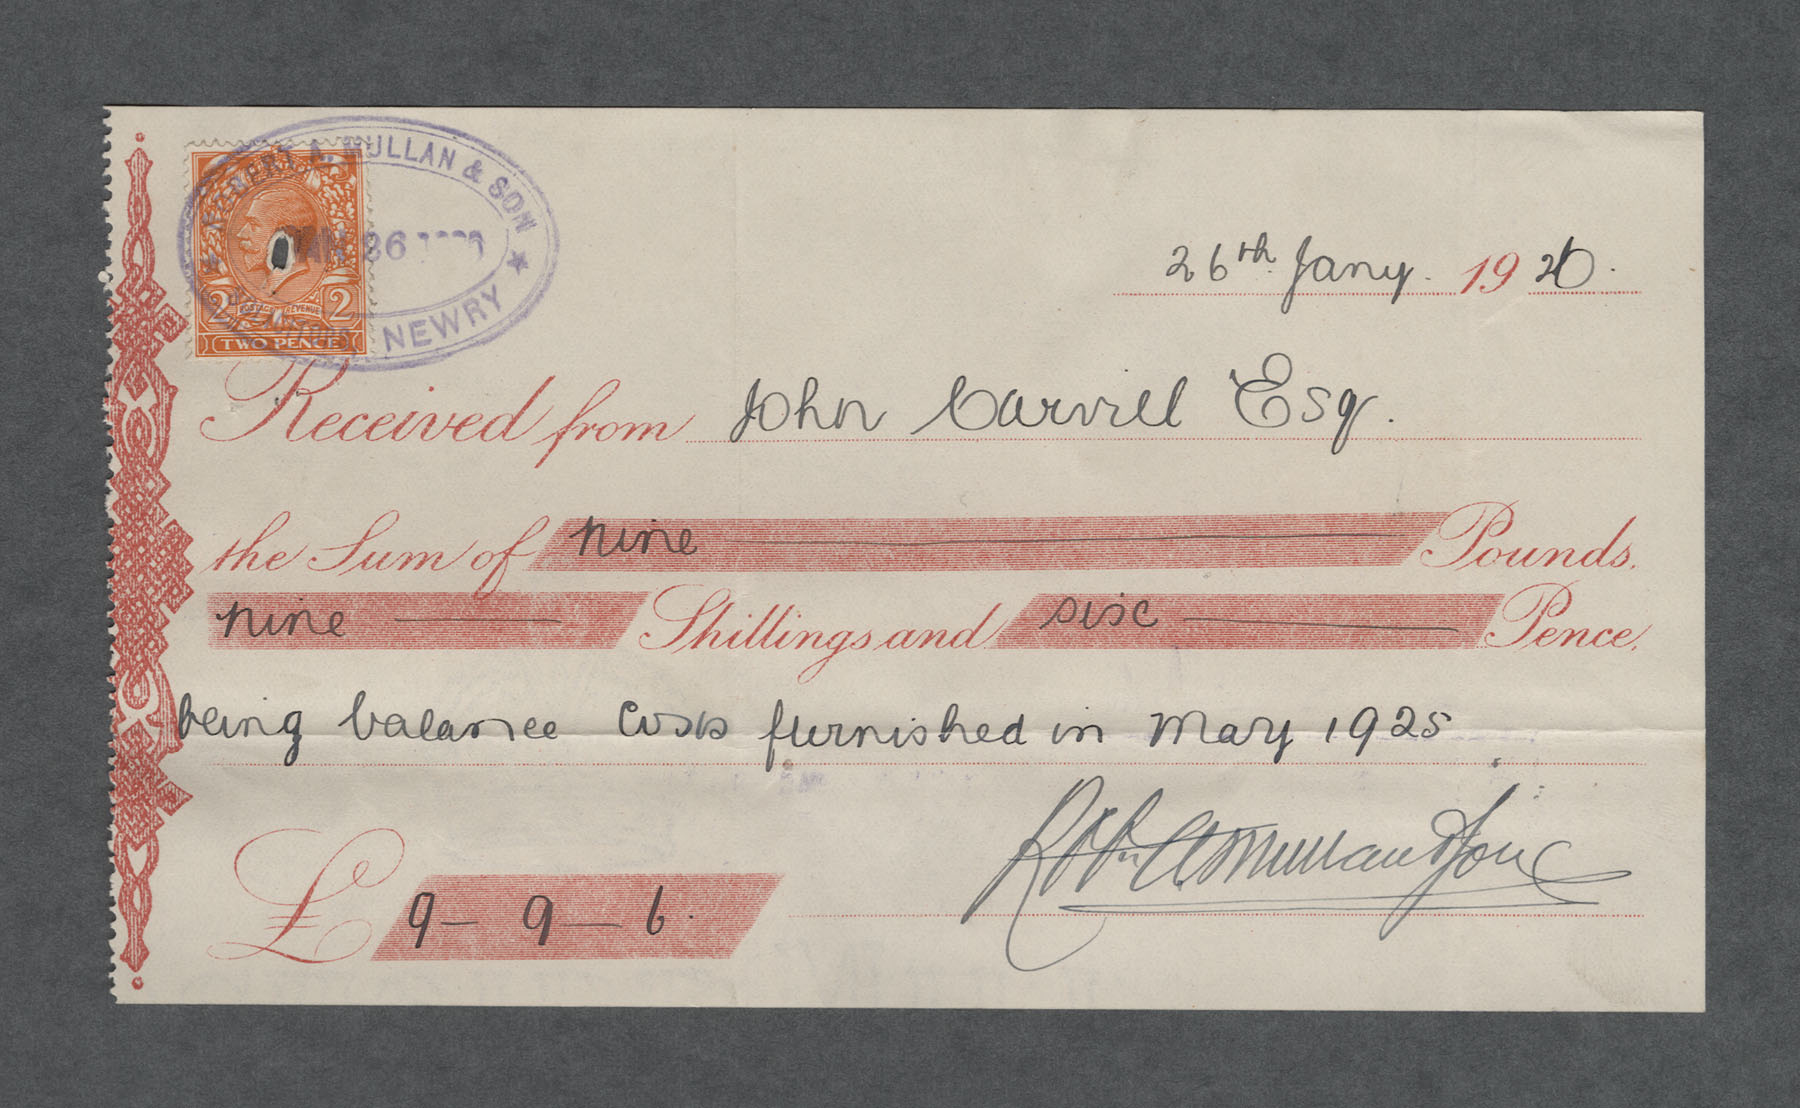 ROBERT A. MULLAN & SON
JAN 26 1926
SOLICITORS NEWRY
POSTAGE REVENUE
2 2
TWO PENCE
26th Jany. 1926.
Received from John Carvill Esq.
the Sum of nine Pounds.
nine Shillings and six Pence.
being balance Costs furnished in May 1925
£ 9 - 9 - 6.
Robt. A. Mullan & Son